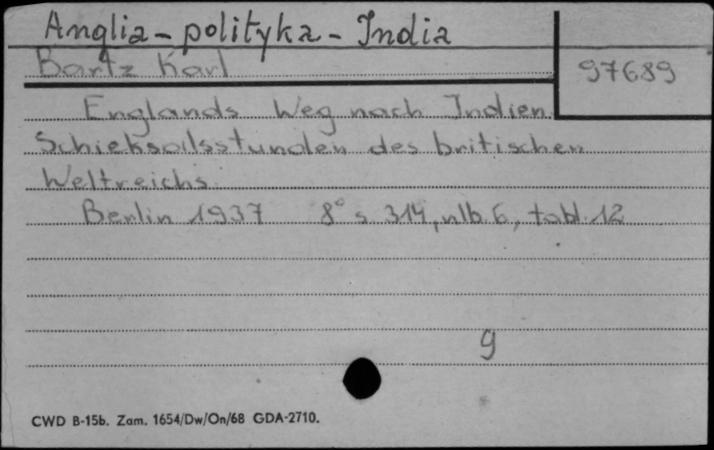 Anglia - polityka - India
Bartz Karl
97689
Englands Weg nach Indien.
Schicksalsstunden des britischen
Weltreichs.
Berlin 1937 8° s. 314, nlb. 6, tabl. 12
9
CWD B-15b. Zam. 1654/Dw/On/68 GDA-2710.